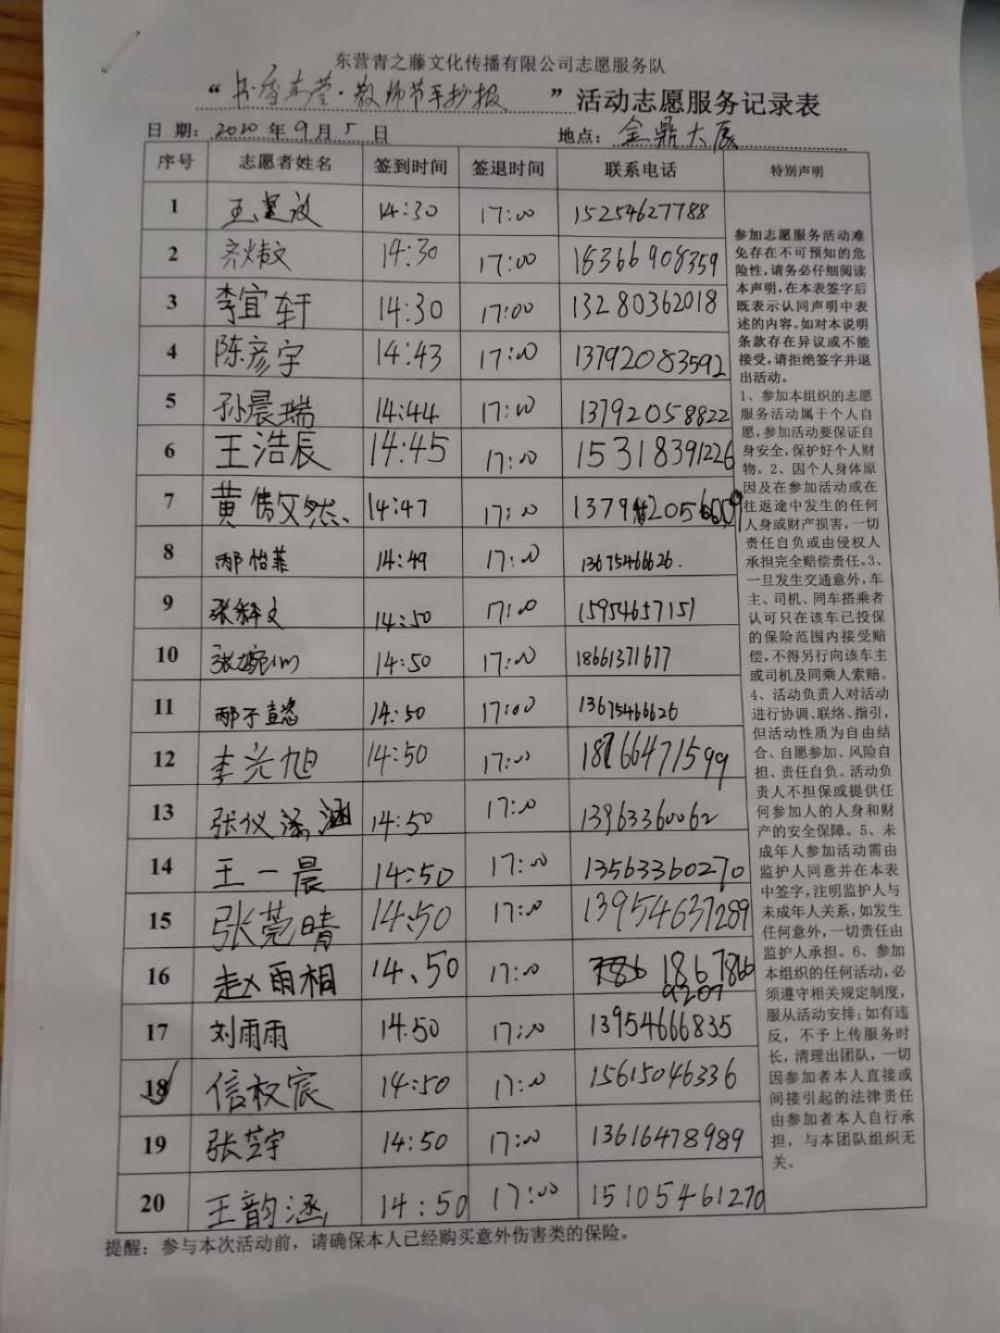 东营青之藤文化传播有限公司志愿服务队
“书香东营·教师节手抄报”活动志愿服务记录表
日 期: 2020 年 9 月 5 日 地点: 金鼎大厦
序号 志愿者姓名 签到时间 签退时间 联系电话 特别声明
1 14:30 17:00 15254627788
2 齐炜文 14:30 17:00 16366908359
3 李宜轩 14:30 17:00 13280362018
4 陈彦宇 14:43 17:00 13792083592
5 孙晨瑞 14:44 17:00 13792058822
6 王浩辰 14:45 17:00 15318391226
7 黄 然 14:47 17:00
8 邴怡菲 14:49 17:00 13675466626.
9 张 文 14:50 17:00 15954657151
10 张婉 14:50 17:00 18661371677
11 邴子懿 14:50 17:00 13675466626
12 李光旭 14:50 17:00 18766471599
13 张仪涵 14:50 17:00 13963360062
14 王一晨 14:50 17:00 13563360270
15 张莞晴 14:50 17:00 13954637289
16 赵雨相 14、50 17:00 1867866
9207
17 刘雨雨 14:50 17:00 13954666835
18 信权宸 14:50 17:00 15615046336
19 张芝宇 14:50 17:00 13616478989
20 王韵涵 14:50 17:00 15105461270
参加志愿服务活动难
免存在不可预知的危
险性,请务必仔细阅读
本声明,在本表签字后
既表示认同声明中表
述的内容。如对本说明
条款存在异议或不能
接受,请拒绝签字并退
出活动。
1、参加本组织的志愿
服务活动属于个人自
愿,参加活动要保证自
身安全,保护好个人财
物。2、因个人身体原
因及在参加活动或在
往返途中发生的任何
人身或财产损害,一切
责任自负或由侵权人
承担完全赔偿责任。3、
一旦发生交通意外,车
主、司机、同车搭乘者
认可只在该车已投保
的保险范围内接受赔
偿,不得另行向该车主
或司机及同乘人索赔。
4、活动负责人对活动
进行协调、联络、指引,
但活动性质为自由结
合、自愿参加、风险自
担、责任自负。活动负
责人不担保或提供任
何参加人的人身和财
产的安全保障。5、未
成年人参加活动需由
监护人同意并在本表
中签字,注明监护人与
未成年人关系,如发生
任何意外,一切责任由
监护人承担。6、参加
本组织的任何活动,必
须遵守相关规定制度,
服从活动安排;如有违
反,不予上传服务时
长,清理出团队,一切
因参加者本人直接或
间接引起的法律责任
由参加者本人自行承
担,与本团队组织无
关。
提醒:参与本次活动前,请确保本人已经购买意外伤害类的保险。